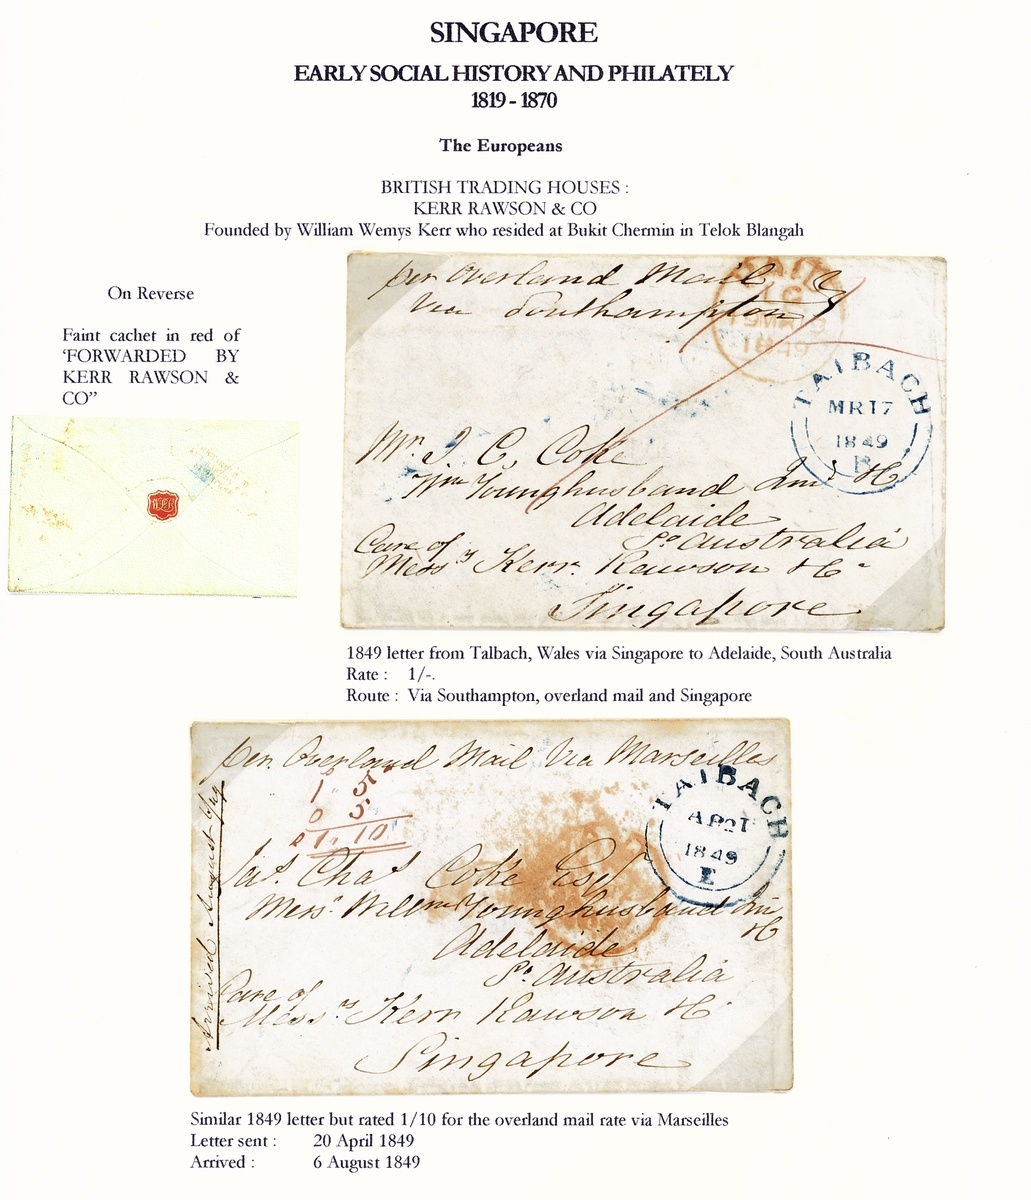 SINGAPORE
EARLY SOCIAL HISTORY AND PHILATELY
1819 - 1870
The Europeans
BRITISH TRADING HOUSES :
KERR RAWSON & CO
Founded by William Wemys Kerr who resided at Bukit Chermin in Telok Blangah
On Reverse
Faint cachet in red of
‘FORWARDED BY
KERR RAWSON &
CO”
per Overland Mail
Via Southampton
1849
TAIBACH
MR17
1849
Mr. J. C. Coke
Wm Younghusband Junr & Co
Adelaide
So Australia
Care of
Messrs Kerr Rawson & Co
Singapore
1849 letter from Talbach, Wales via Singapore to Adelaide, South Australia
Rate : 1/-.
Route : Via Southampton, overland mail and Singapore
per Overland Mail Via Marseilles
1 5
0 5
1 10
TAIBACH
1849
E
Jas. Chas Coke Esq
Messrs Willm Younghusband Jun
& Co
Adelaide
So. Australia
Care of
Messrs Kerr Rawson & Co
Singapore
Arrived August 6/49
Similar 1849 letter but rated 1/10 for the overland mail rate via Marseilles
Letter sent : 20 April 1849
Arrived : 6 August 1849